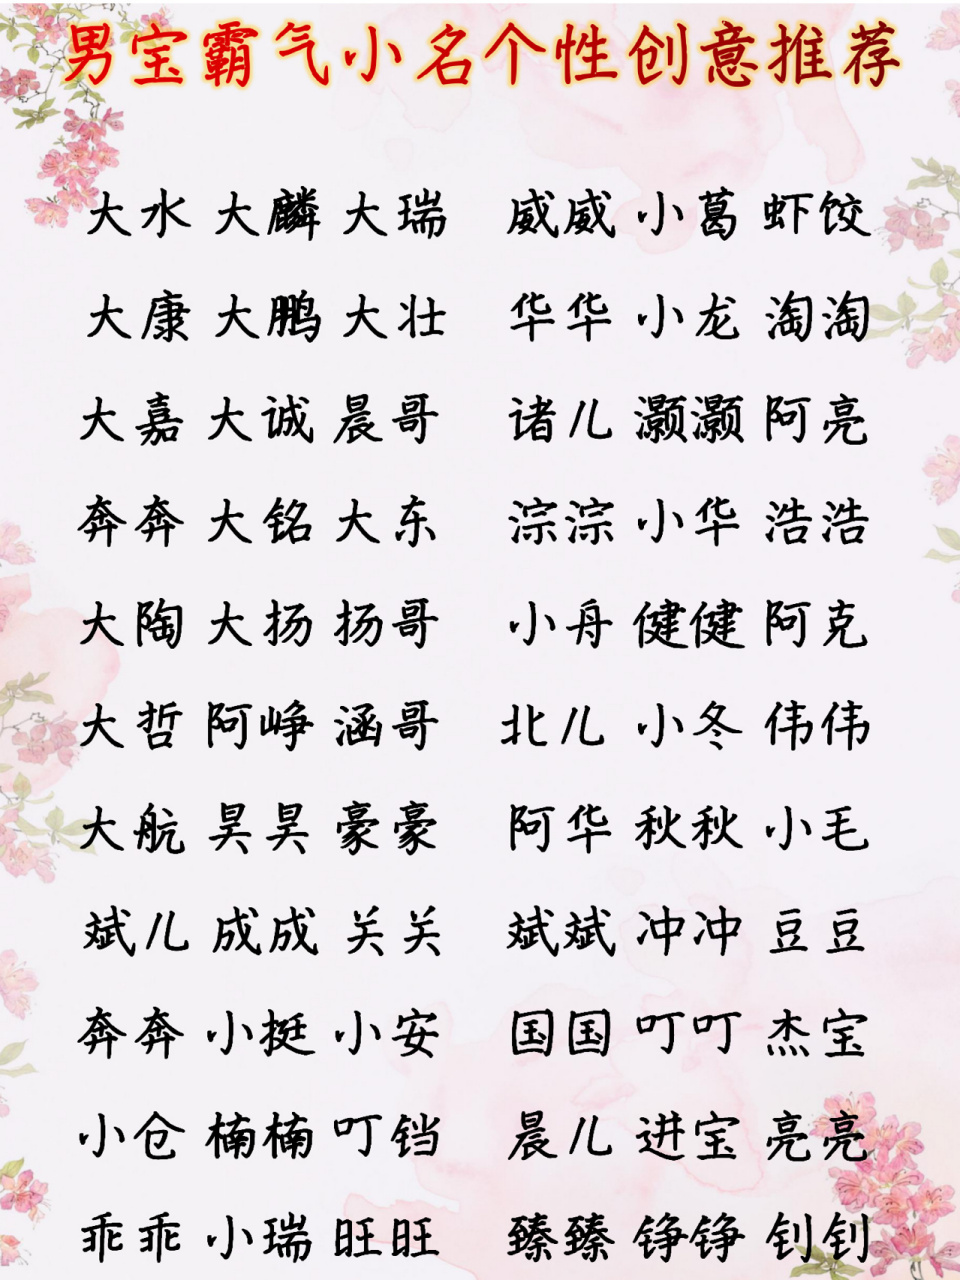 男宝霸气小名个性创意推荐
大水 大麟 大瑞 威威 小葛 虾饺
大康 大鹏 大壮 华华 小龙 淘淘
大嘉 大诚 晨哥 诸儿 灏灏 阿亮
奔奔 大铭 大东 淙淙 小华 浩浩
大陶 大扬 扬哥 小舟 健健 阿克
大哲 阿峥 涵哥 北儿 小冬 伟伟
大航 昊昊 豪豪 阿华 秋秋 小毛
斌儿 成成 关关 斌斌 冲冲 豆豆
奔奔 小挺 小安 国国 叮叮 杰宝
小仓 楠楠 叮铛 晨儿 进宝 亮亮
乖乖 小瑞 旺旺 臻臻 铮铮 钊钊